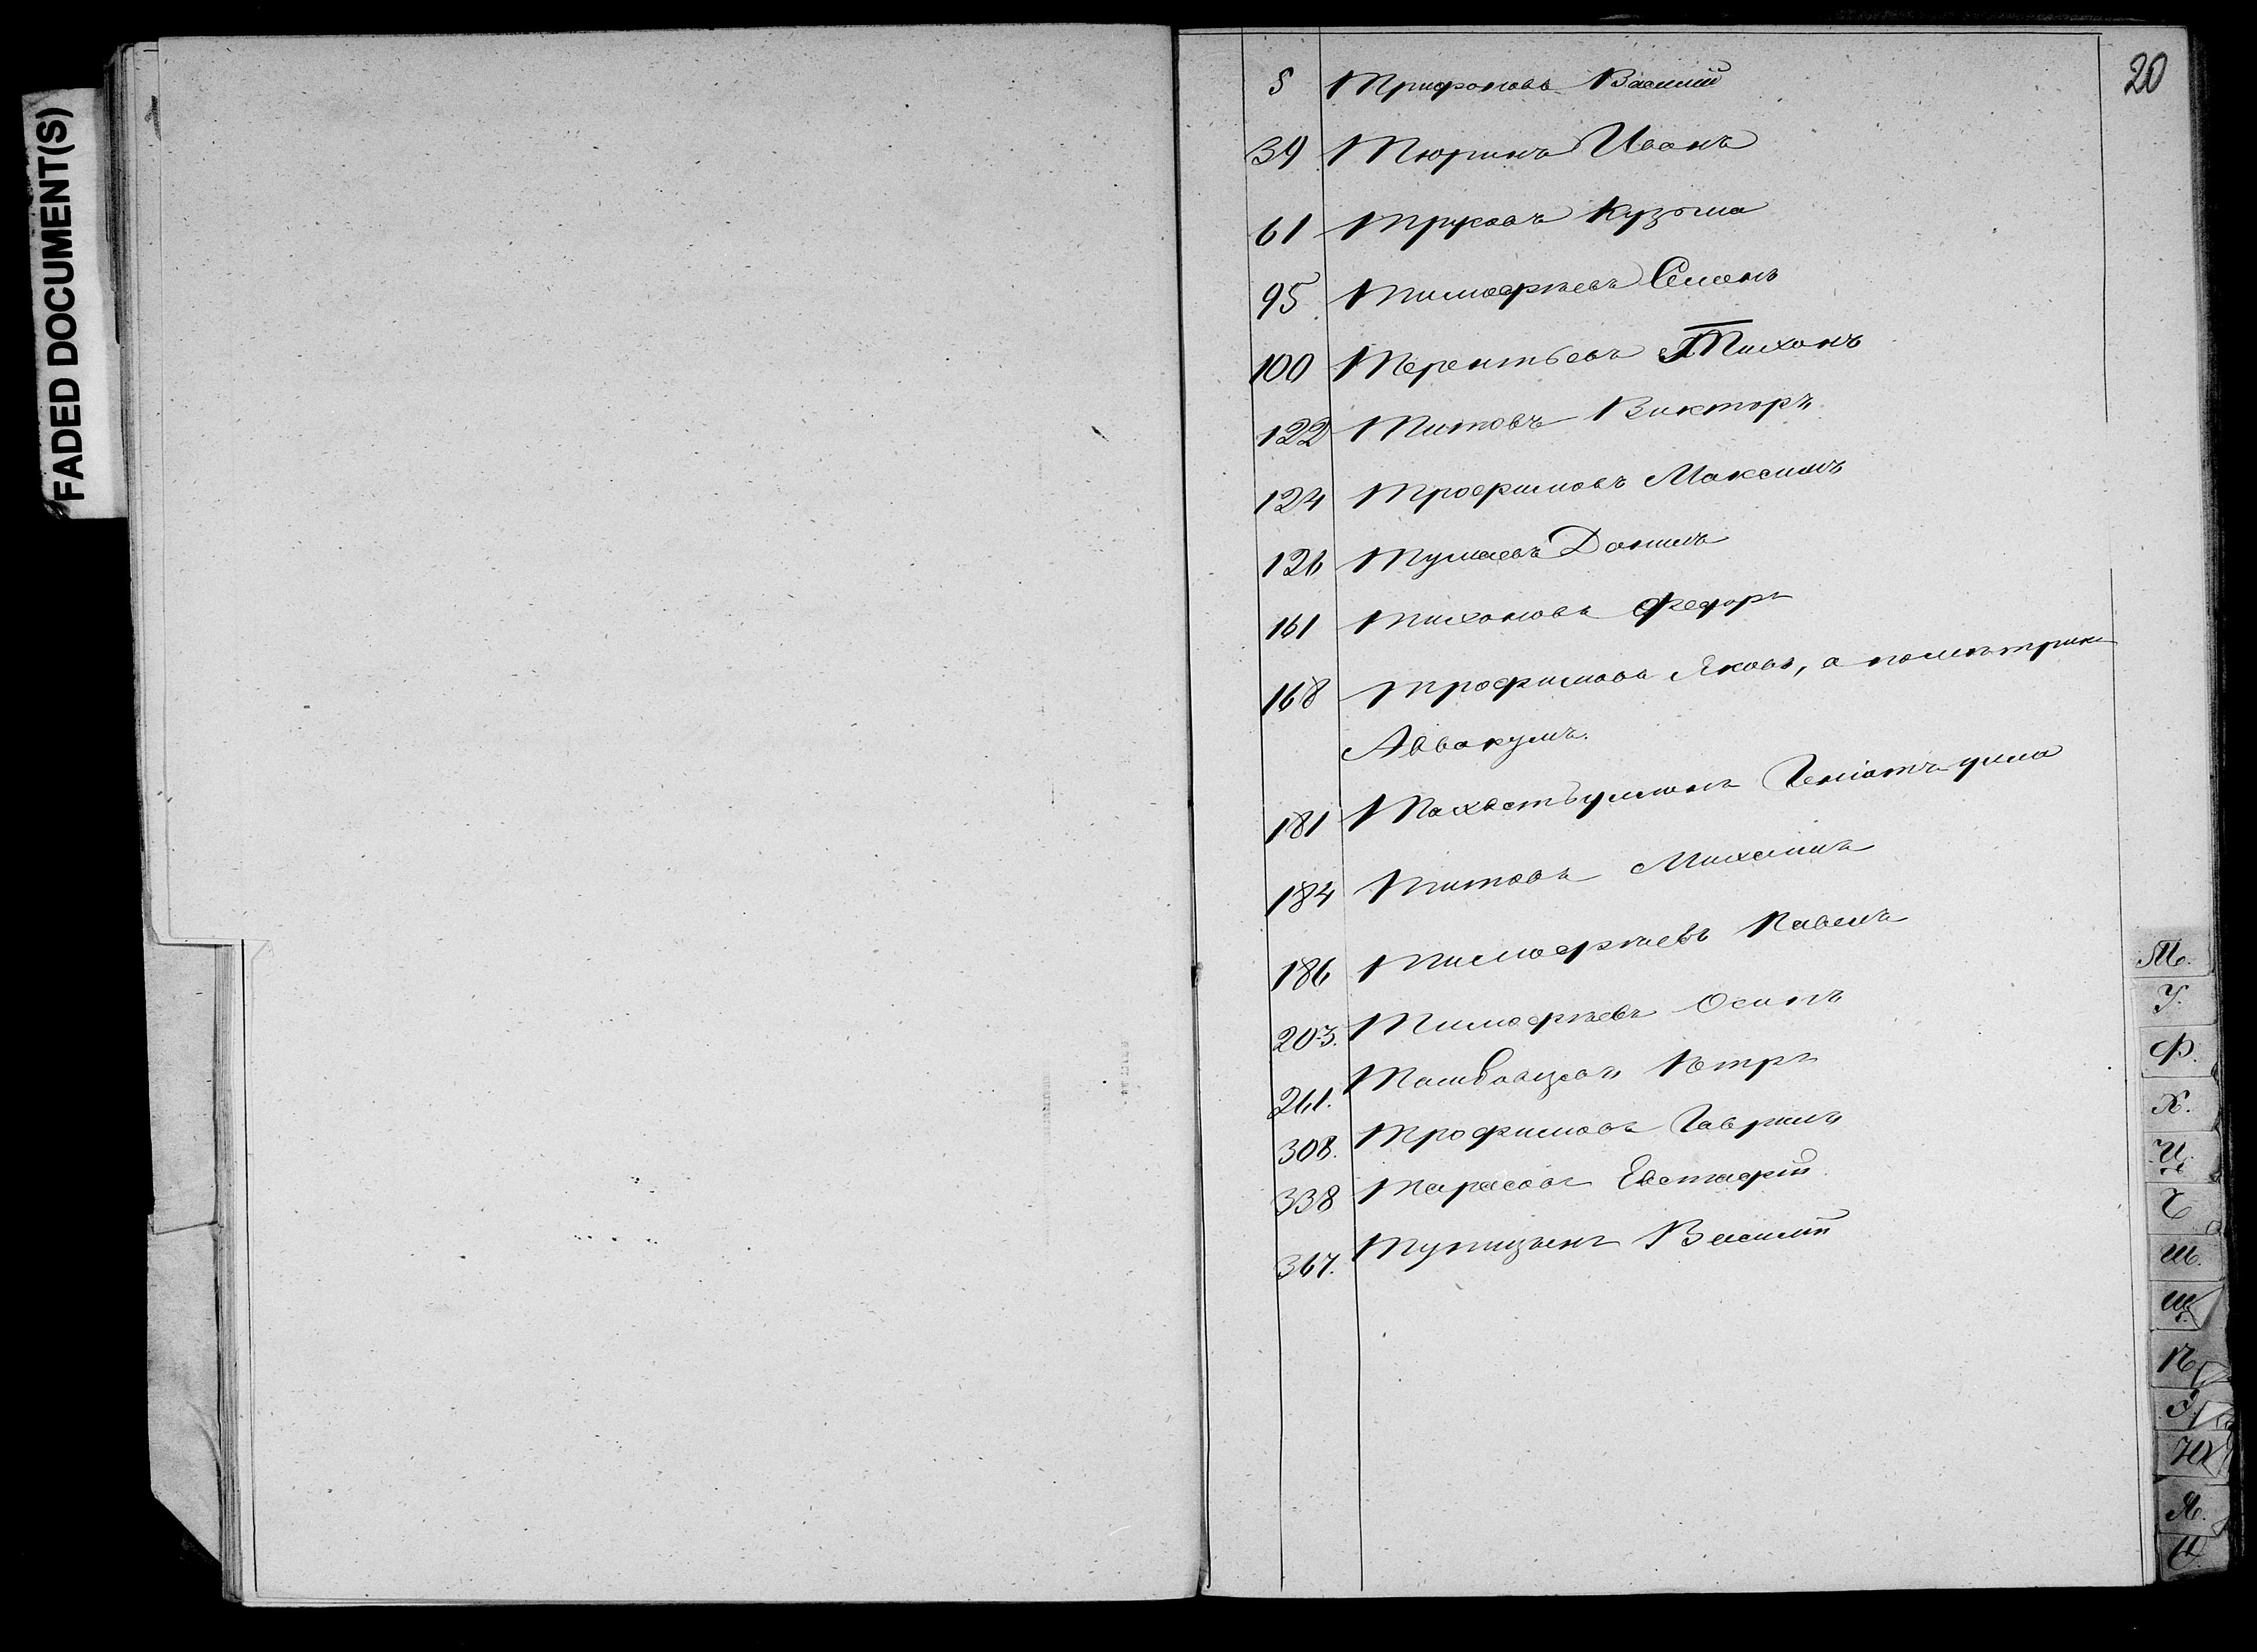 FADED DOCUMENT(S)
20
5 Трифоновъ Василій
39 Тюринъ Иванъ
61 Труровъ Кузьма
95 Тимофѣевъ Семенъ
100 Терентьевъ Тихонъ
122 Титовъ Викторъ
124 Трофимовъ Максимъ
126 Тумаевъ Данилъ
161 Тихоновъ Федоръ
168 Трофимовъ Яковъ, а по метрик
Аввакумъ.
181
184 Титовъ Михаилъ
186 Тимофѣевъ Павелъ
203. Тимофѣевъ Осипъ
261. Петръ
308. Трофимовъ Гаврилъ
338 Тарасовъ Евстафій
367. Василій
Т.
У.
Ф.
Х.
Ц.
Ч
Ш.
Щ.
Ѣ
Э.
Ю
Я.